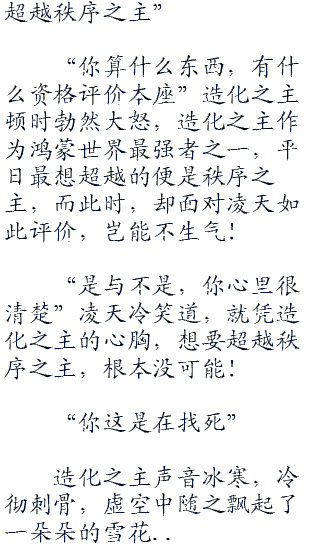 超越秩序之主”
“你算什么东西，有什
么资格评价本座”造化之主
顿时勃然大怒，造化之主作
为鸿蒙世界最强者之一，平
日最想超越的便是秩序之
主，而此时，却面对凌天如
此评价，岂能不生气！
“是与不是，你心里很
清楚”凌天冷笑道，就凭造
化之主的心胸，想要超越秩
序之主，根本没可能！
“你这是在找死”
造化之主声音冰寒，冷
彻刺骨，虚空中随之飘起了
一朵朵的雪花..